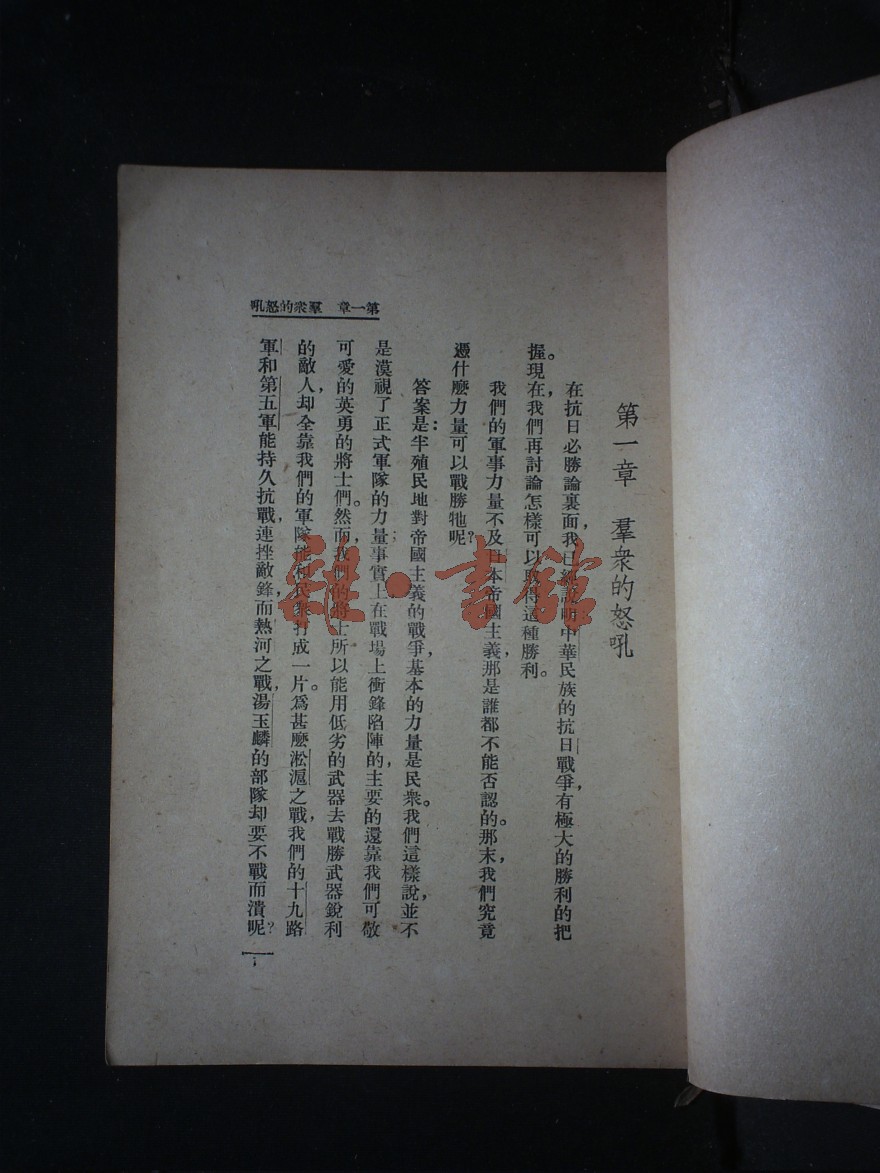 第一章　羣衆的怒吼
第一章　羣衆的怒吼
在抗日必勝論裏面，我已經說明中華民族的抗日戰爭，有極大的勝利的把
握。現在，我們再討論怎樣可以取得這種勝利。
我們的軍事力量不及日本帝國主義，那是誰都不能否認的。那末，我們究竟
憑什麼力量可以戰勝牠呢？
答案是：半殖民地對帝國主義的戰爭，基本的力量是民衆。我們這樣說，並不
是漠視了正式軍隊的力量；事實上在戰場上衝鋒陷陣的，主要的還靠我們可敬
可愛的英勇的將士們。然而，我們的將士所以能用低劣的武器去戰勝武器銳利
的敵人，却全靠我們的軍隊能和民衆打成一片。爲甚麼淞滬之戰，我們的十九路
軍和第五軍能持久抗戰，連挫敵鋒，而熱河之戰，湯玉麟的部隊却要不戰而潰呢？
雜·書館